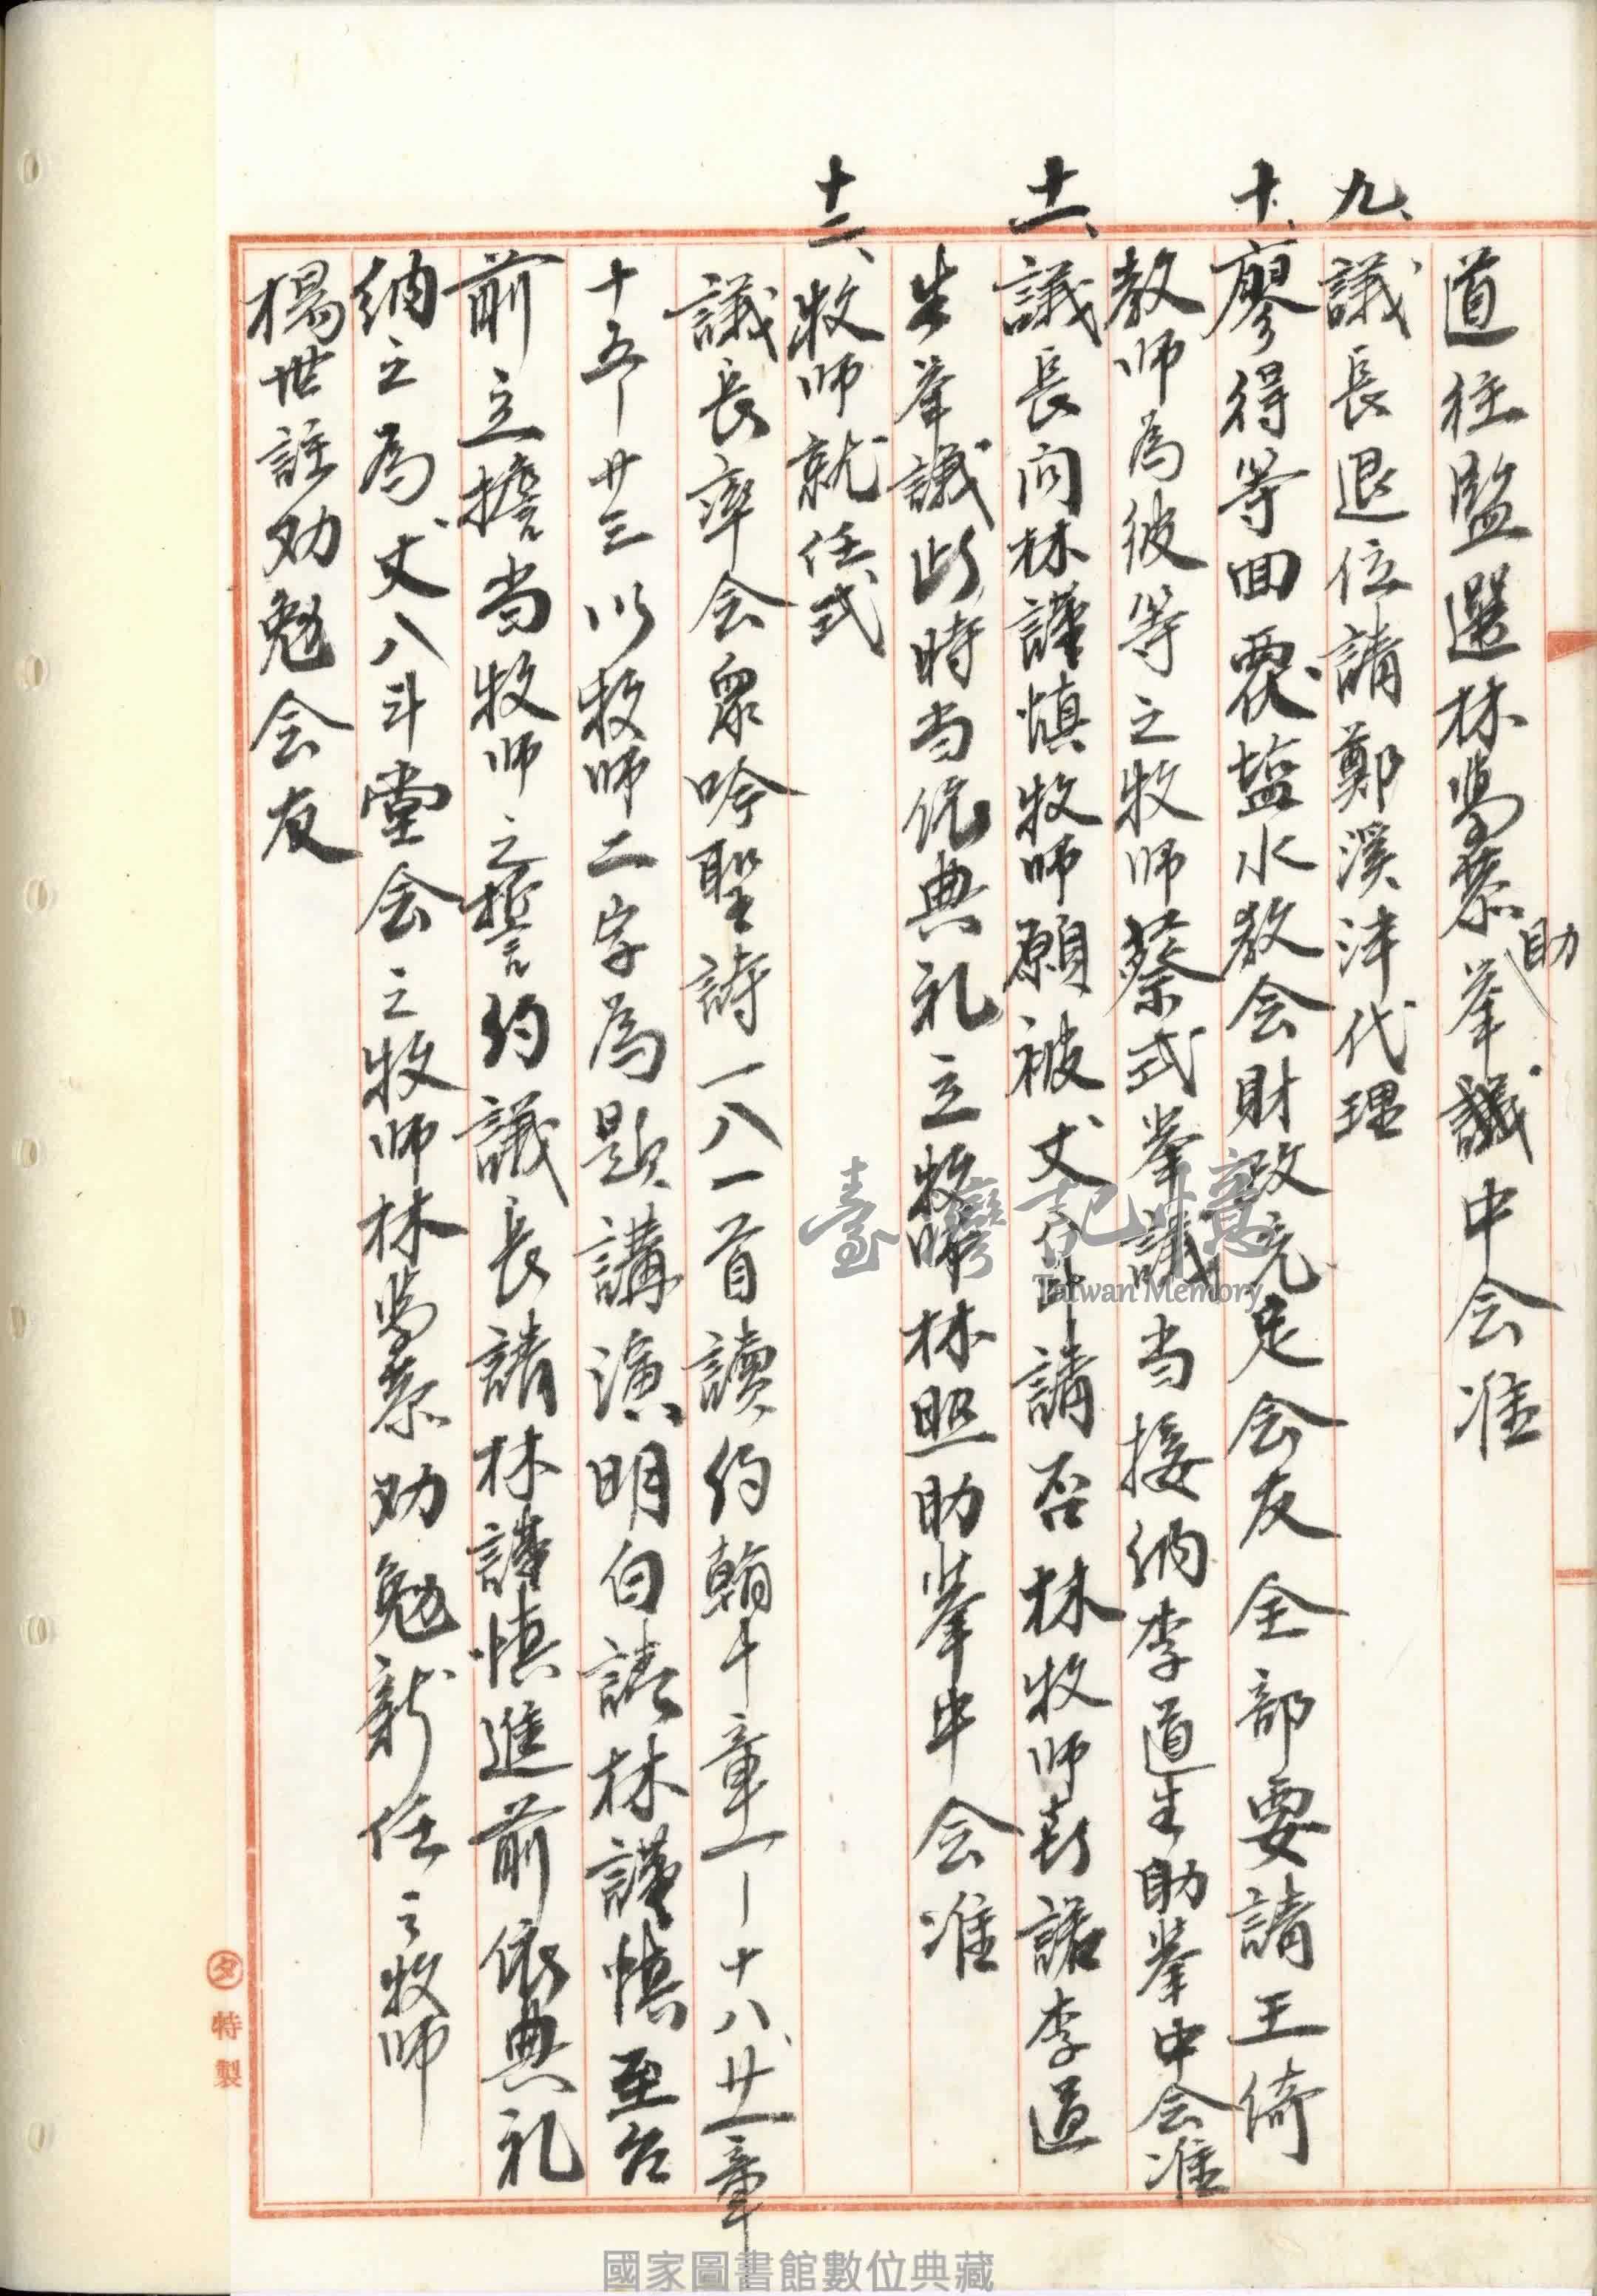 道往監選林学恭助举議中会准
九、議長退位請鄭溪泮代理
十、廖得等回覆塩水教会財政充足会友全部要請王倚
教师為彼等之牧师蔡式举議当接納李道生助举中会准
十一、議長问林謹慎牧师願被丈八斗請否林牧师喜諾李道
生举議此時当依典礼立牧师林照助举中会准
十二、牧师就任式
議長率会眾吟聖詩一八一首讀约翰十章一ー十八、廿一章
十五ー廿三以牧师二字為題講演明白請林謹慎至台
前立擔当牧师之誓约議長請林謹慎進前依典礼
納之為丈八斗堂会之牧师林学恭劝勉新任之牧师
楊世註劝勉会友
タ特製
臺灣記憶
Taiwan Memory
國家圖書館數位典藏